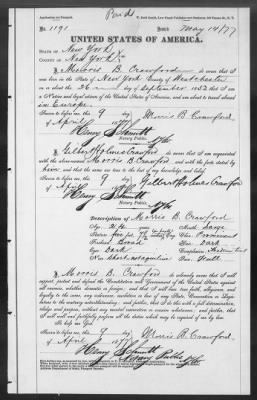 Paid
No. 1191 Issued May 14/77
UNITED STATES OF AMERICA.
STATE OF New York
COUNTY OF New York
I, Morris B. Crawford do swear that I
was born in the State of New York County of Westchester
on about the 26 day of September 1852 that I am
a Native and loyal citizen of the United States of America, and am about to travel abroad
in Europe
Sworn to before me, this 9 day Morris B. Crawford
of April 1877
Henry Schmitt
I, Gilbert Holmes Crawford do swear that I am acquainted with
the above-named Morris B. Crawford, and with the facts stated by
him, and that the same are true to the best of my knowledge and belief.
Sworn to before me, this 9 day Gilbert Holmes Crawford
of April
Henry Schmitt
Description of Morris B. Crawford
Age: 24 Mouth: Large
Stature: five feet
Forehead: Broad
Eyes: Dark
Hair: Dark
Face: Small
I, Morris B. Crawford do solemnly swear that I will
support, protect and defend the Constitution and Government of the United States against
all enemies, whether domestic or foreign; and that I will bear true faith, allegiance, and
loyalty to the same, any ordinance, resolution or law of any State, Convention or Legislature
to the contrary notwithstanding; and further, that I do this with a full determination,
pledge and purpose, without any mental reservation or evasion whatsoever; and further, that
I will well and faithfully perform all the duties which may be required of me by law.
So help me God.
Sworn to before me, this 9 day Morris B. Crawford
of April 1877
Henry Schmitt
Notary Public